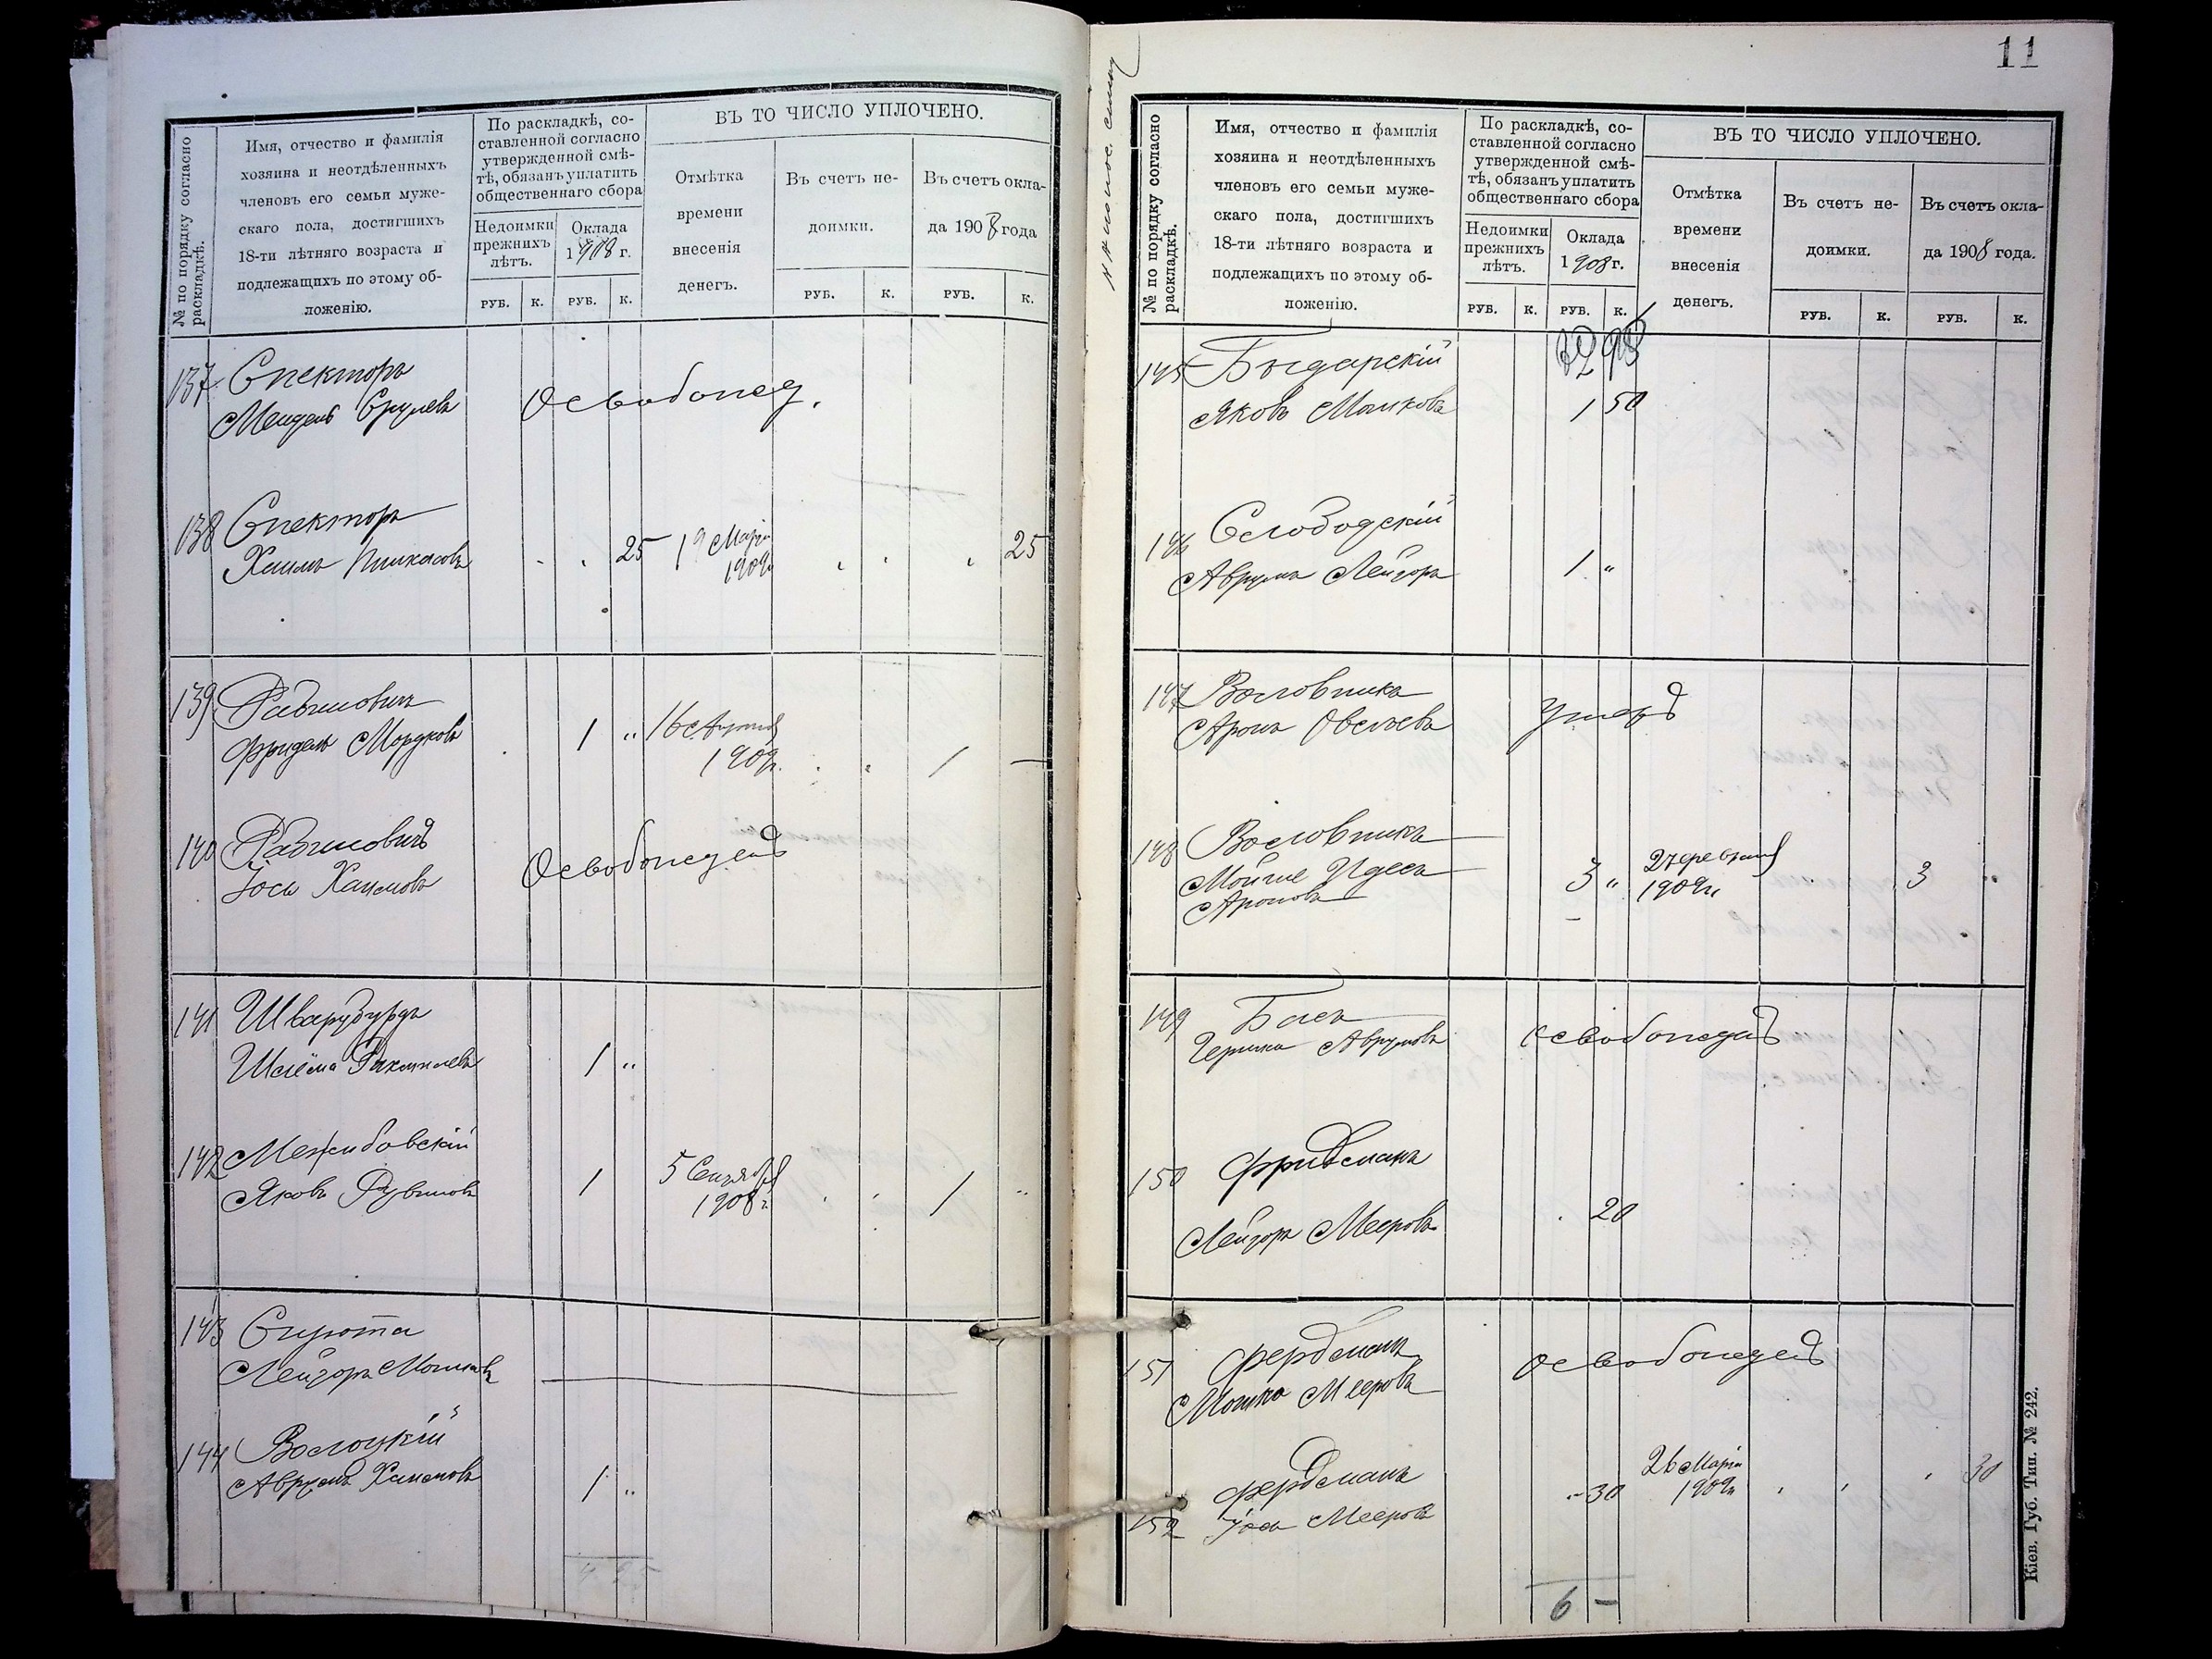 № по порядку согласно раскладкѣ.
Имя, отчество и фамилія
хозяина и неотдѣленныхъ
членовъ его семьи муже-
скаго пола, достигшихъ
18-ти лѣтняго возраста и
подлежащихъ по этому об-
ложенію.
По раскладкѣ, со-
ставленной согласно
утвержденной смѣ-
тѣ, обязанъ уплатить
общественнаго сбора
Недоимки
прежнихъ
лѣтъ.
Оклада
1908 г.
РУБ. К. РУБ. К.
ВЪ ТО ЧИСЛО УПЛОЧЕНО.
Отмѣтка
времени
внесенія
денегъ.
Въ счетъ не-
доимки.
РУБ. К.
Въ счетъ окла-
да 1908 года
РУБ. К.
137 Спекторъ
Мендель Срулевъ
Освобожд.
138 Спекторъ
Хаимъ Пинхасовъ
25 19 Марта 25
1909г
139 Рабиновичъ
Фридель Мордковъ
1 " 16 Августа
1909г. 1 —
140 Рабиновичъ
Іось Хаимовъ
Освобожденъ
141 Шварцбурдъ
Шлёма Рахмилевъ
1 "
142 Межибовскій
Яковъ Рувиновъ
1 5 Сентября
1908г. 1 "
143 Сирота
Лейзоръ Мошковъ
144 Волоцкій
Аврумъ Хаимовъ
1 "
4 25
11
№ по порядку согласно раскладкѣ.
Имя, отчество и фамилія
хозяина и неотдѣленныхъ
членовъ его семьи муже-
скаго пола, достигшихъ
18-ти лѣтняго возраста и
подлежащихъ по этому об-
ложенію.
По раскладкѣ, со-
ставленной согласно
утвержденной смѣ-
тѣ, обязанъ уплатить
общественнаго сбора
Недоимки
прежнихъ
лѣтъ.
Оклада
1908 г.
РУБ. К. РУБ. К.
ВЪ ТО ЧИСЛО УПЛОЧЕНО.
Отмѣтка
времени
внесенія
денегъ.
Въ счетъ не-
доимки.
РУБ. К.
Въ счетъ окла-
да 1908 года.
РУБ. К.
145 Быдарскій
Яковъ Мошковъ
1 50
146 Слободскій
Аврумъ Лейзоръ
1 "
147 Воловникъ
Аронъ Овсѣевъ
Умеръ
148 Воловникъ
Мойше Идесъ
Ароновъ
3 " 27 февраля 3 "
1909г
149 Басъ
Гершко Аврумовъ
Освобожденъ
150 Фридманъ
Лейзоръ Мееровъ
20
151 Фердманъ
Мошко Мееровъ
Освобожденъ
152 Фердманъ
Іось Мееровъ
30 26 Марта 30
1909г
6 —
Кіев. Губ. Тип. № 242.